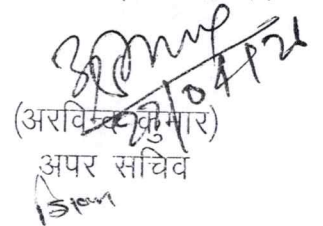 27/04/21
(अरविन्द कुमार)
अपर सचिव